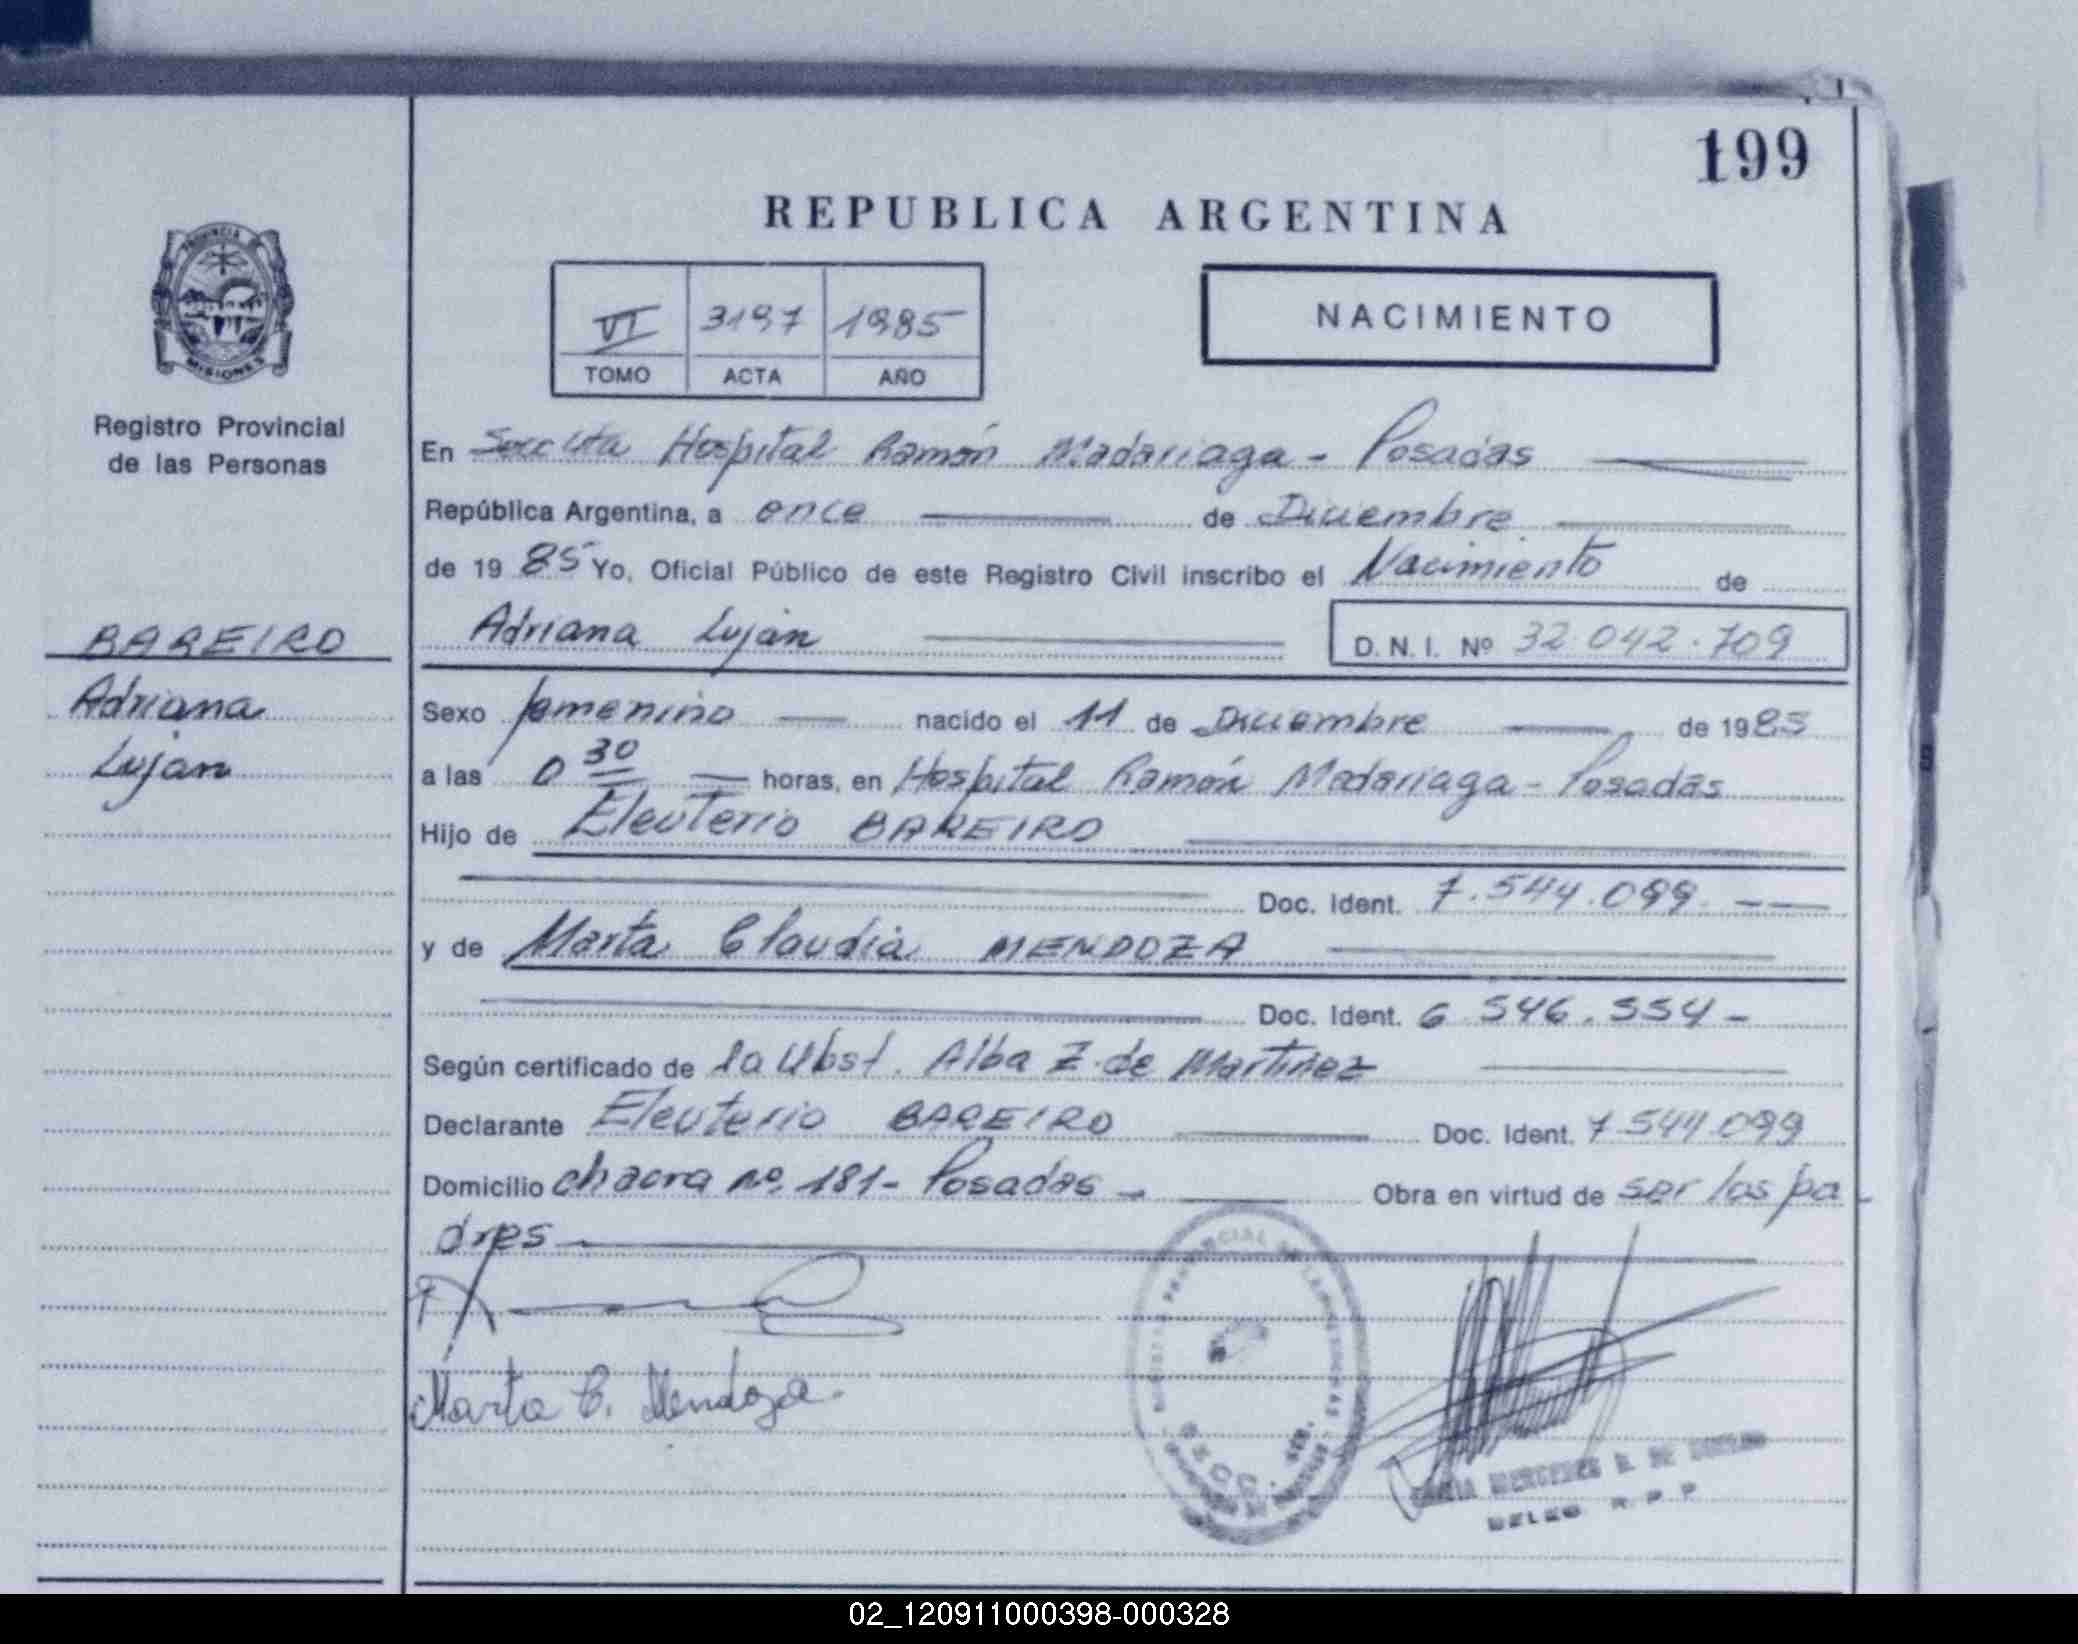 199
REPUBLICA ARGENTINA
PROVINCIA DE
MISIONES
Registro Provincial
de las Personas
VI 3197 1985
TOMO ACTA AÑO
NACIMIENTO
En Secc 4ta Hospital Ramón Madariaga - Posadas
República Argentina, a once de Diciembre
de 19 85 Yo, Oficial Público de este Registro Civil inscribo el Nacimiento de
Adriana Luján D. N. I. Nº 32.042.709
BAREIRO
Adriana
Luján
Sexo femenino nacido el 11 de Diciembre de 1985
a las 0 30 horas, en Hospital Ramón Madariaga - Posadas
Hijo de Eleuterio BAREIRO
Doc. Ident. 7.544.099
y de Marta Claudia MENDOZA
Doc. Ident. 6.546.554-
Según certificado de la Obst. Alba Z. de Martinez
Declarante Eleuterio BAREIRO Doc. Ident. 7.544.099
Domicilio chacra nº 181- Posadas - Obra en virtud de ser los pa-
dres
Marta C. Mendoza.
MERCEDES
DELEG R P P
02_120911000398-000328